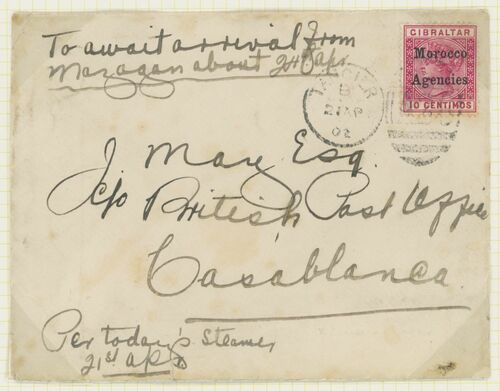 To await arrival from
Mazagan about 24th Apr
GIBRALTAR
Morocco
Agencies
10 CENTIMOS
TANGIER
B
21 AP
02
J. Mary Esq.
c/o British Post Office
Casablanca
Per today's Steamer
21st apl